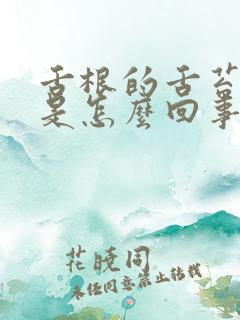 舌根的舌苔
是怎麼回事
花晓同
未经同意禁止转载